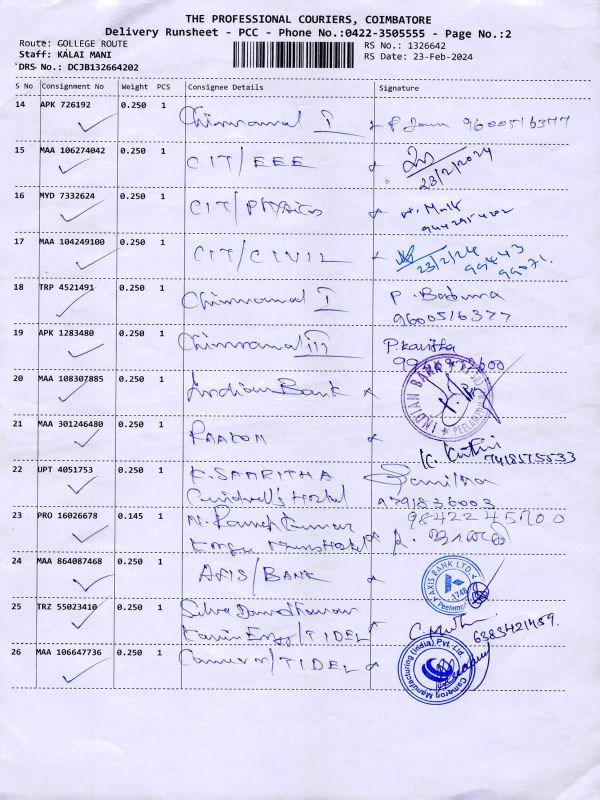 THE PROFESSIONAL COURIERS, COIMBATORE
Delivery Runsheet - PCC - Phone No.:0422-3505555 - Page No.:2
Route: COLLEGE ROUTE
Staff: KALAI MANI
DRS No.: DCJB132664202
RS No.: 1326642
RS Date: 23-Feb-2024
S No Consignment No Weight PCS Consignee Details Signature
14 APK 726192 0.250 1 I 9600516377
15 MAA 106274042 0.250 1 CIT/EEE
23/2/2024
16 MYD 7332624 0.250 1 CIT/PHYSICS
17 MAA 104249100 0.250 1 CIT/CIVIL
23/2/24 99443
99071
18 TRP 4521491 0.250 1 I P.
9600516377
19 APK 1283480 0.250 1 III P.Kavitha
20 MAA 108307885 0.250 1 Indian Bank
INDIAN BANK
PEELAMEDU
21 MAA 301246480 0.250 1 K.
7418575533
22 UPT 4051753 0.250 1 K. SAMRITHA
9791836003
Hostel
23 PRO 16026678 0.145 1 N. Ramesh Kumar
9842245700
24 MAA 864087468 0.250 1 AXIS/BANK
AXIS BANK LTD.
1748
Peelamedu
25 TRZ 55023410 0.250 1 Selva
/TIDEL
6383421459
26 MAA 106647736 0.250 1 Cameron/TIDEL
Cameron Manufacturing (India) Pvt. Ltd